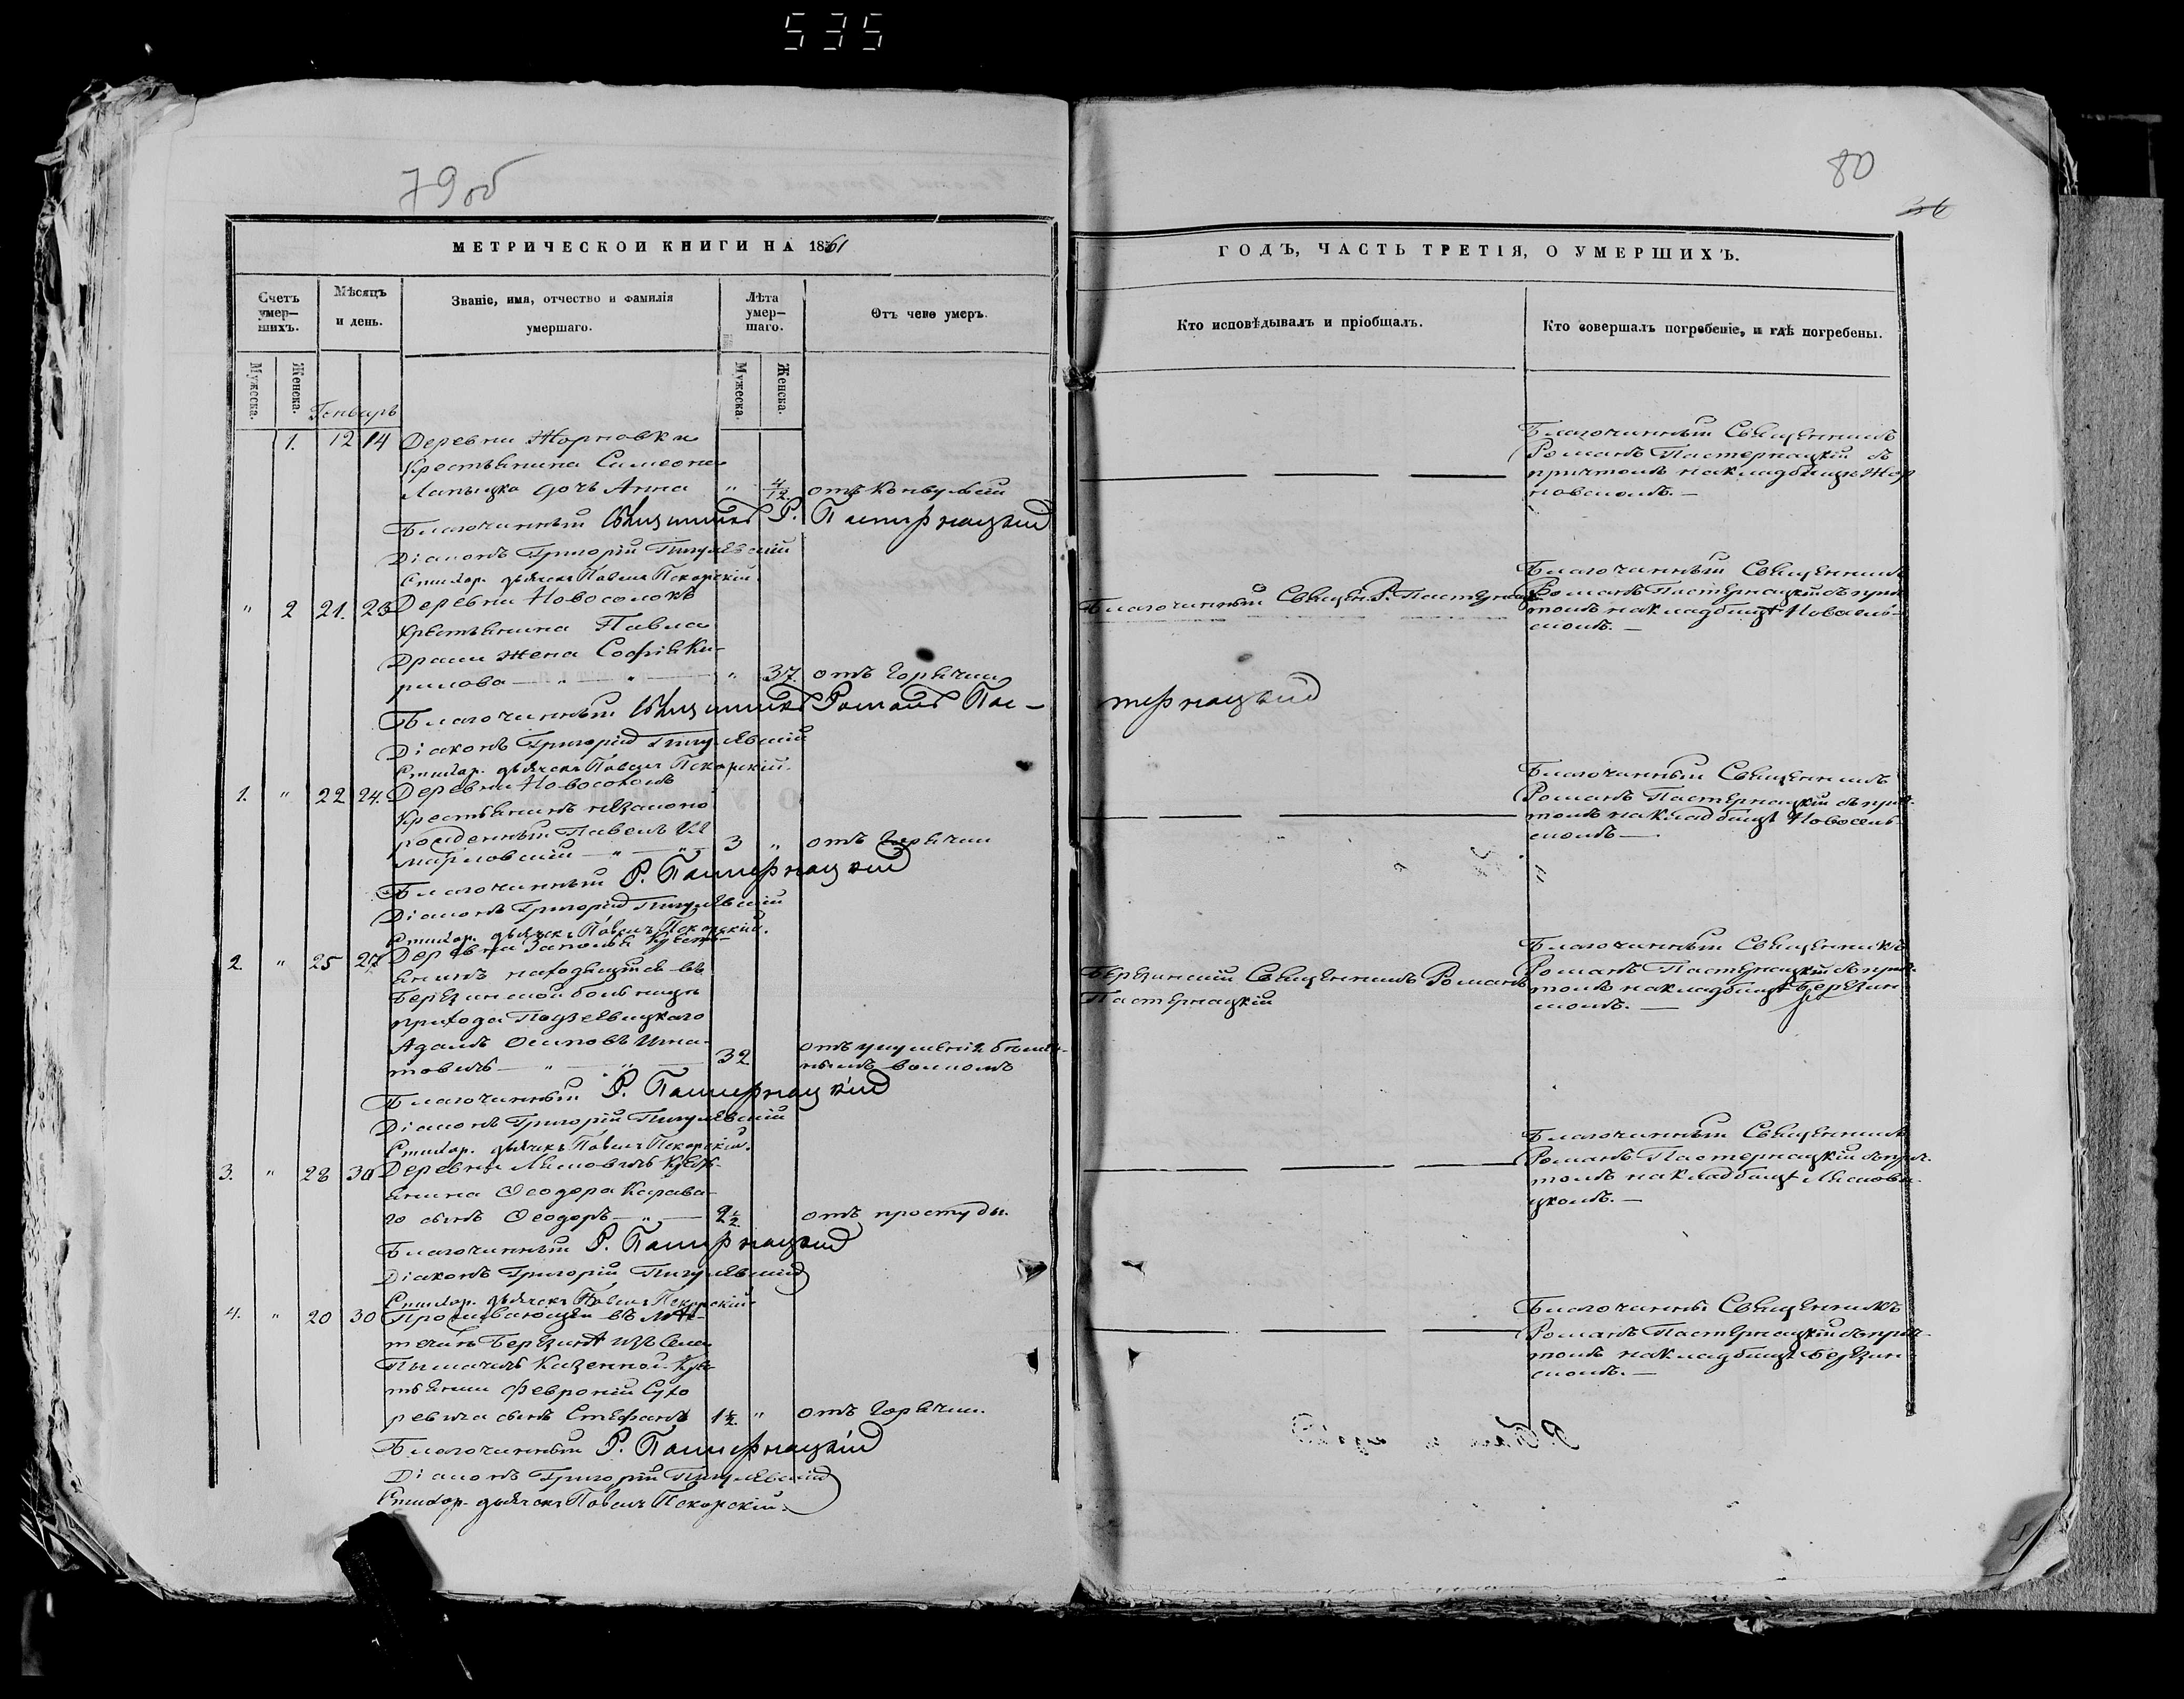 535
79 об
80
36
МЕТРИЧЕСКОЙ КНИГИ НА 1861
ГОДЪ, ЧАСТЬ ТРЕТІЯ, О УМЕРШИХЪ.
Счетъ умер-шихъ.
Мѣсяцъ и день.
Званіе, имя, отчество и фамилія умершаго.
Лѣта умер-шаго.
Отъ чего умеръ.
Кто исповѣдывалъ и пріобщалъ.
Кто совершалъ погребеніе, и гдѣ погребены.
Мужеска.
Женска.
Мужеска.
Женска.
Генварь
1. 12 14 Деревни Жорновки
Крестьянина Симеона
дочь Анна " 4/12. отъ конвульсіи
Благочинный Священникъ
Романъ Пастернацкій съ
причтомъ на кладбищѣ Жор
новскомъ. —
Благочинный Священникъ Р. Пастернацкій
Діаконъ Григорій Пигулевскій
Стихар. дьячекъ Павелъ Пекарскій.
" 2 21. 23 Деревни Новоселокъ
крестьянина Павла
жена Софія Ки-
рилова — " — " — " 37. отъ горячки
Благочинный Священ. Р. Пастернац
Благочинный Священникъ
Романъ Пастернацкій съ прич
томъ на кладбищѣ Новосель-
скомъ. —
Благочинный Священникъ Романъ Пас- тернацкій
Діаконъ Григорій Пигулевскій
Стихар. дьячекъ Павелъ Пекарскій.
1. " 22 24. Деревни Новоселокъ
Крестьянинъ незаконо
рожденный Павелъ
— " — " — 3 " отъ горячки
Благочинный Священникъ
Романъ Пастернацкій съ прич-
томъ на кладбищѣ Новосель
скомъ —
Благочинный Р. Пастернацкій
Діаконъ Григорій Пигулевскій
Стихар. дьячекъ Павелъ Пекарскій.
2. " 25 27 Деревни Заполья Кресть-
янинъ находящійся въ
Березинской больницѣ
прихода
Адамъ Осиповъ Игна-
товичъ — " — " — 32 отъ укушенія бѣшен-
нымъ волкомъ
Березинскій Священникъ Романъ
Пастернацкій
Благочинный Священникъ
Романъ Пастернацкій съ прич-
томъ на кладбищѣ Березин
скомъ. —
Благочинный Р. Пастернацкій
Діаконъ Григорій Пигулевскій
Стихар. дьячекъ Павелъ Пекарскій.
3. " 28 30 Деревни Лясковичъ Крест-
янина Ѳеодора Карава-
го сынъ Ѳеодоръ — " — 2½. отъ простуды.
Благочинный Священникъ
Романъ Пастернацкій съ прич-
томъ на кладбищѣ Лясков-
цкомъ. —
Благочинный Р. Пастернацкій
Діаконъ Григорій Пигулевскій
Стихар. дьячекъ Павелъ Пекарскій
4. " 20 30 Проживающей въ мѣс-
течкѣ Березинѣ изъ села
казенной Кре
тьянки Февроніи Сухо
ревича сынъ Стефанъ 1½. " отъ горячки.
Благочинны Священникъ
Романъ Пастернацкій съ прич-
томъ на кладбищѣ Березин
скомъ. —
Благочинный Р. Пастернацкій
Діаконъ Григорій Пигулевскій
Стихар. дьячекъ Павелъ Пекарскій.